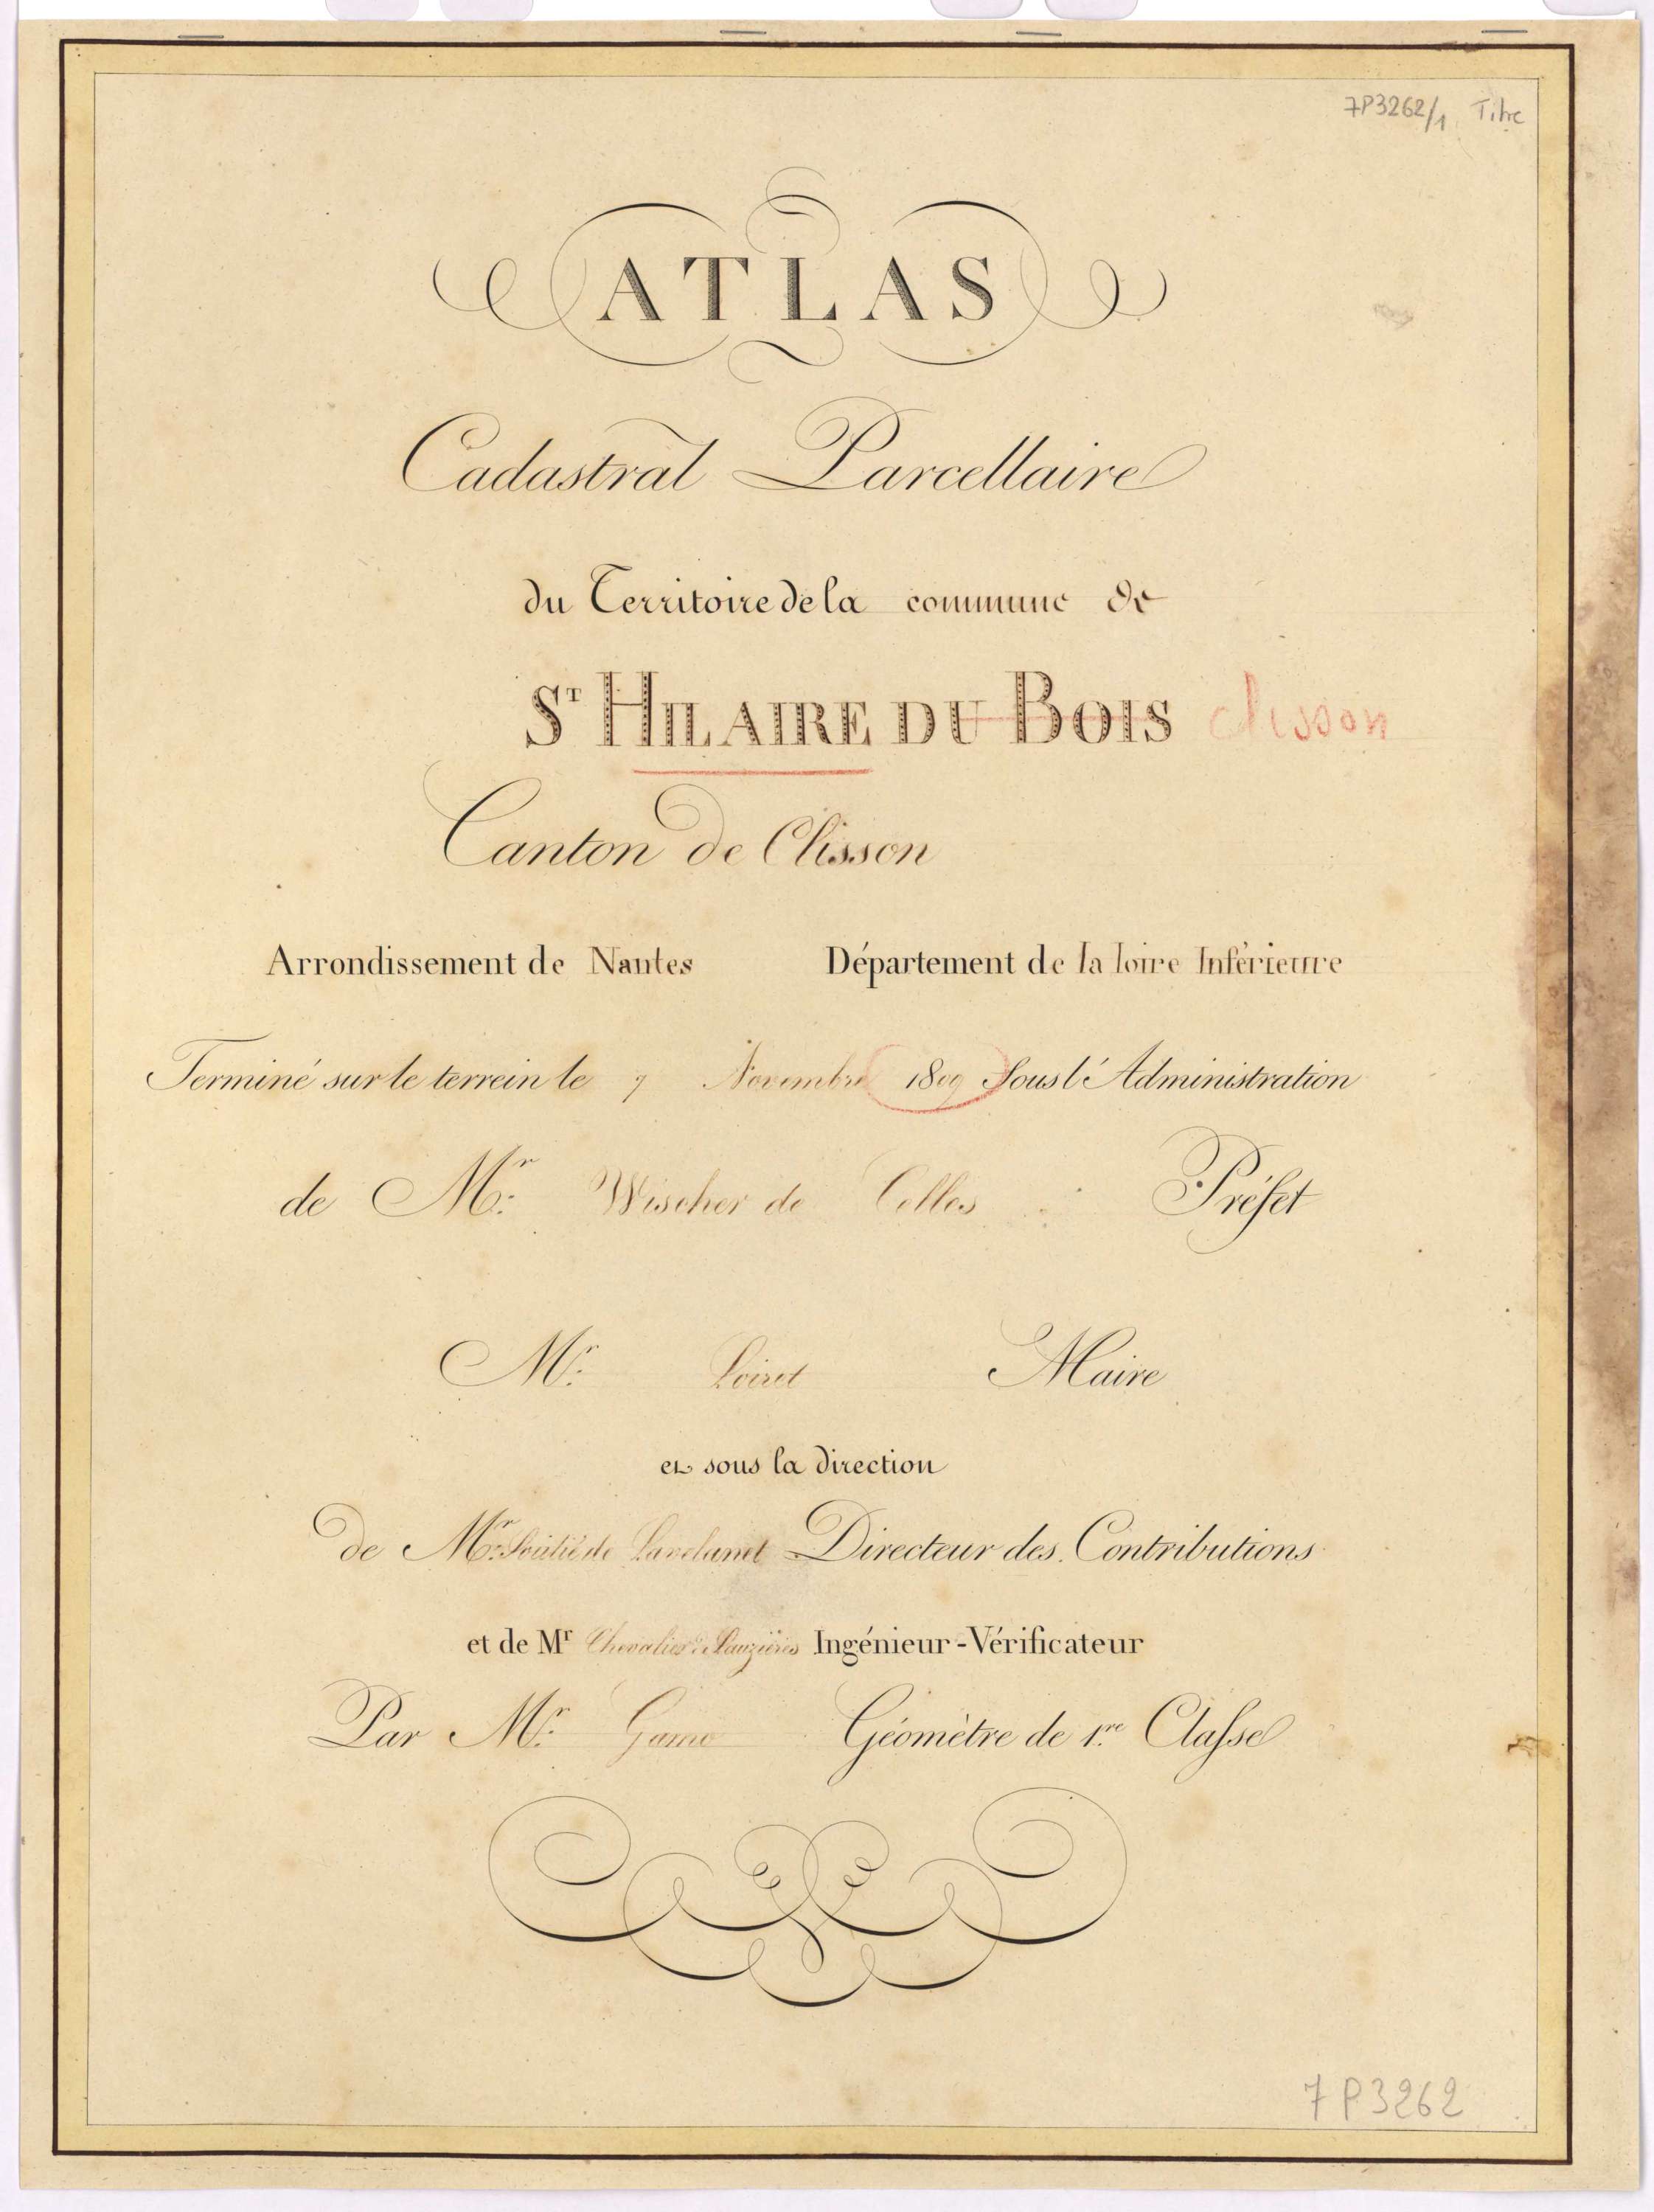 7P3262/1 Titre
ATLAS
Cadastral Parcellaire
du Territoire de la commune de
St HILAIRE DU BOIS clisson
Canton de Clisson
Arrondissement de Nantes Département de la loire Inférieure
Terminé sur le terrein le 7 Novembre 1809 Sous l'Administration
de Mr. Wischer de Celles Préfet
Mr. Loiret Maire
et sous la direction
de Mr. de Lavelanet Directeur des Contributions
et de Mr Chevalier Ingénieur-Vérificateur
Par Mr. Géomètre de 1re Classe
7P3262